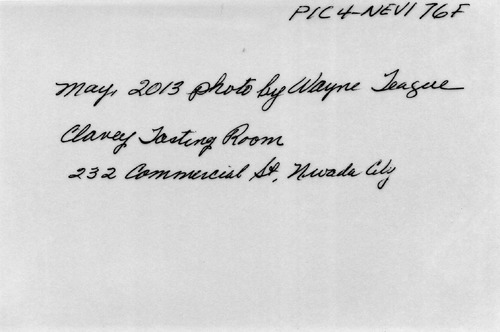 PIC 4-NEVI 76F
May, 2013 photo by Wayne Teague
Clavey Tasting Room
232 Commercial St, Nevada City